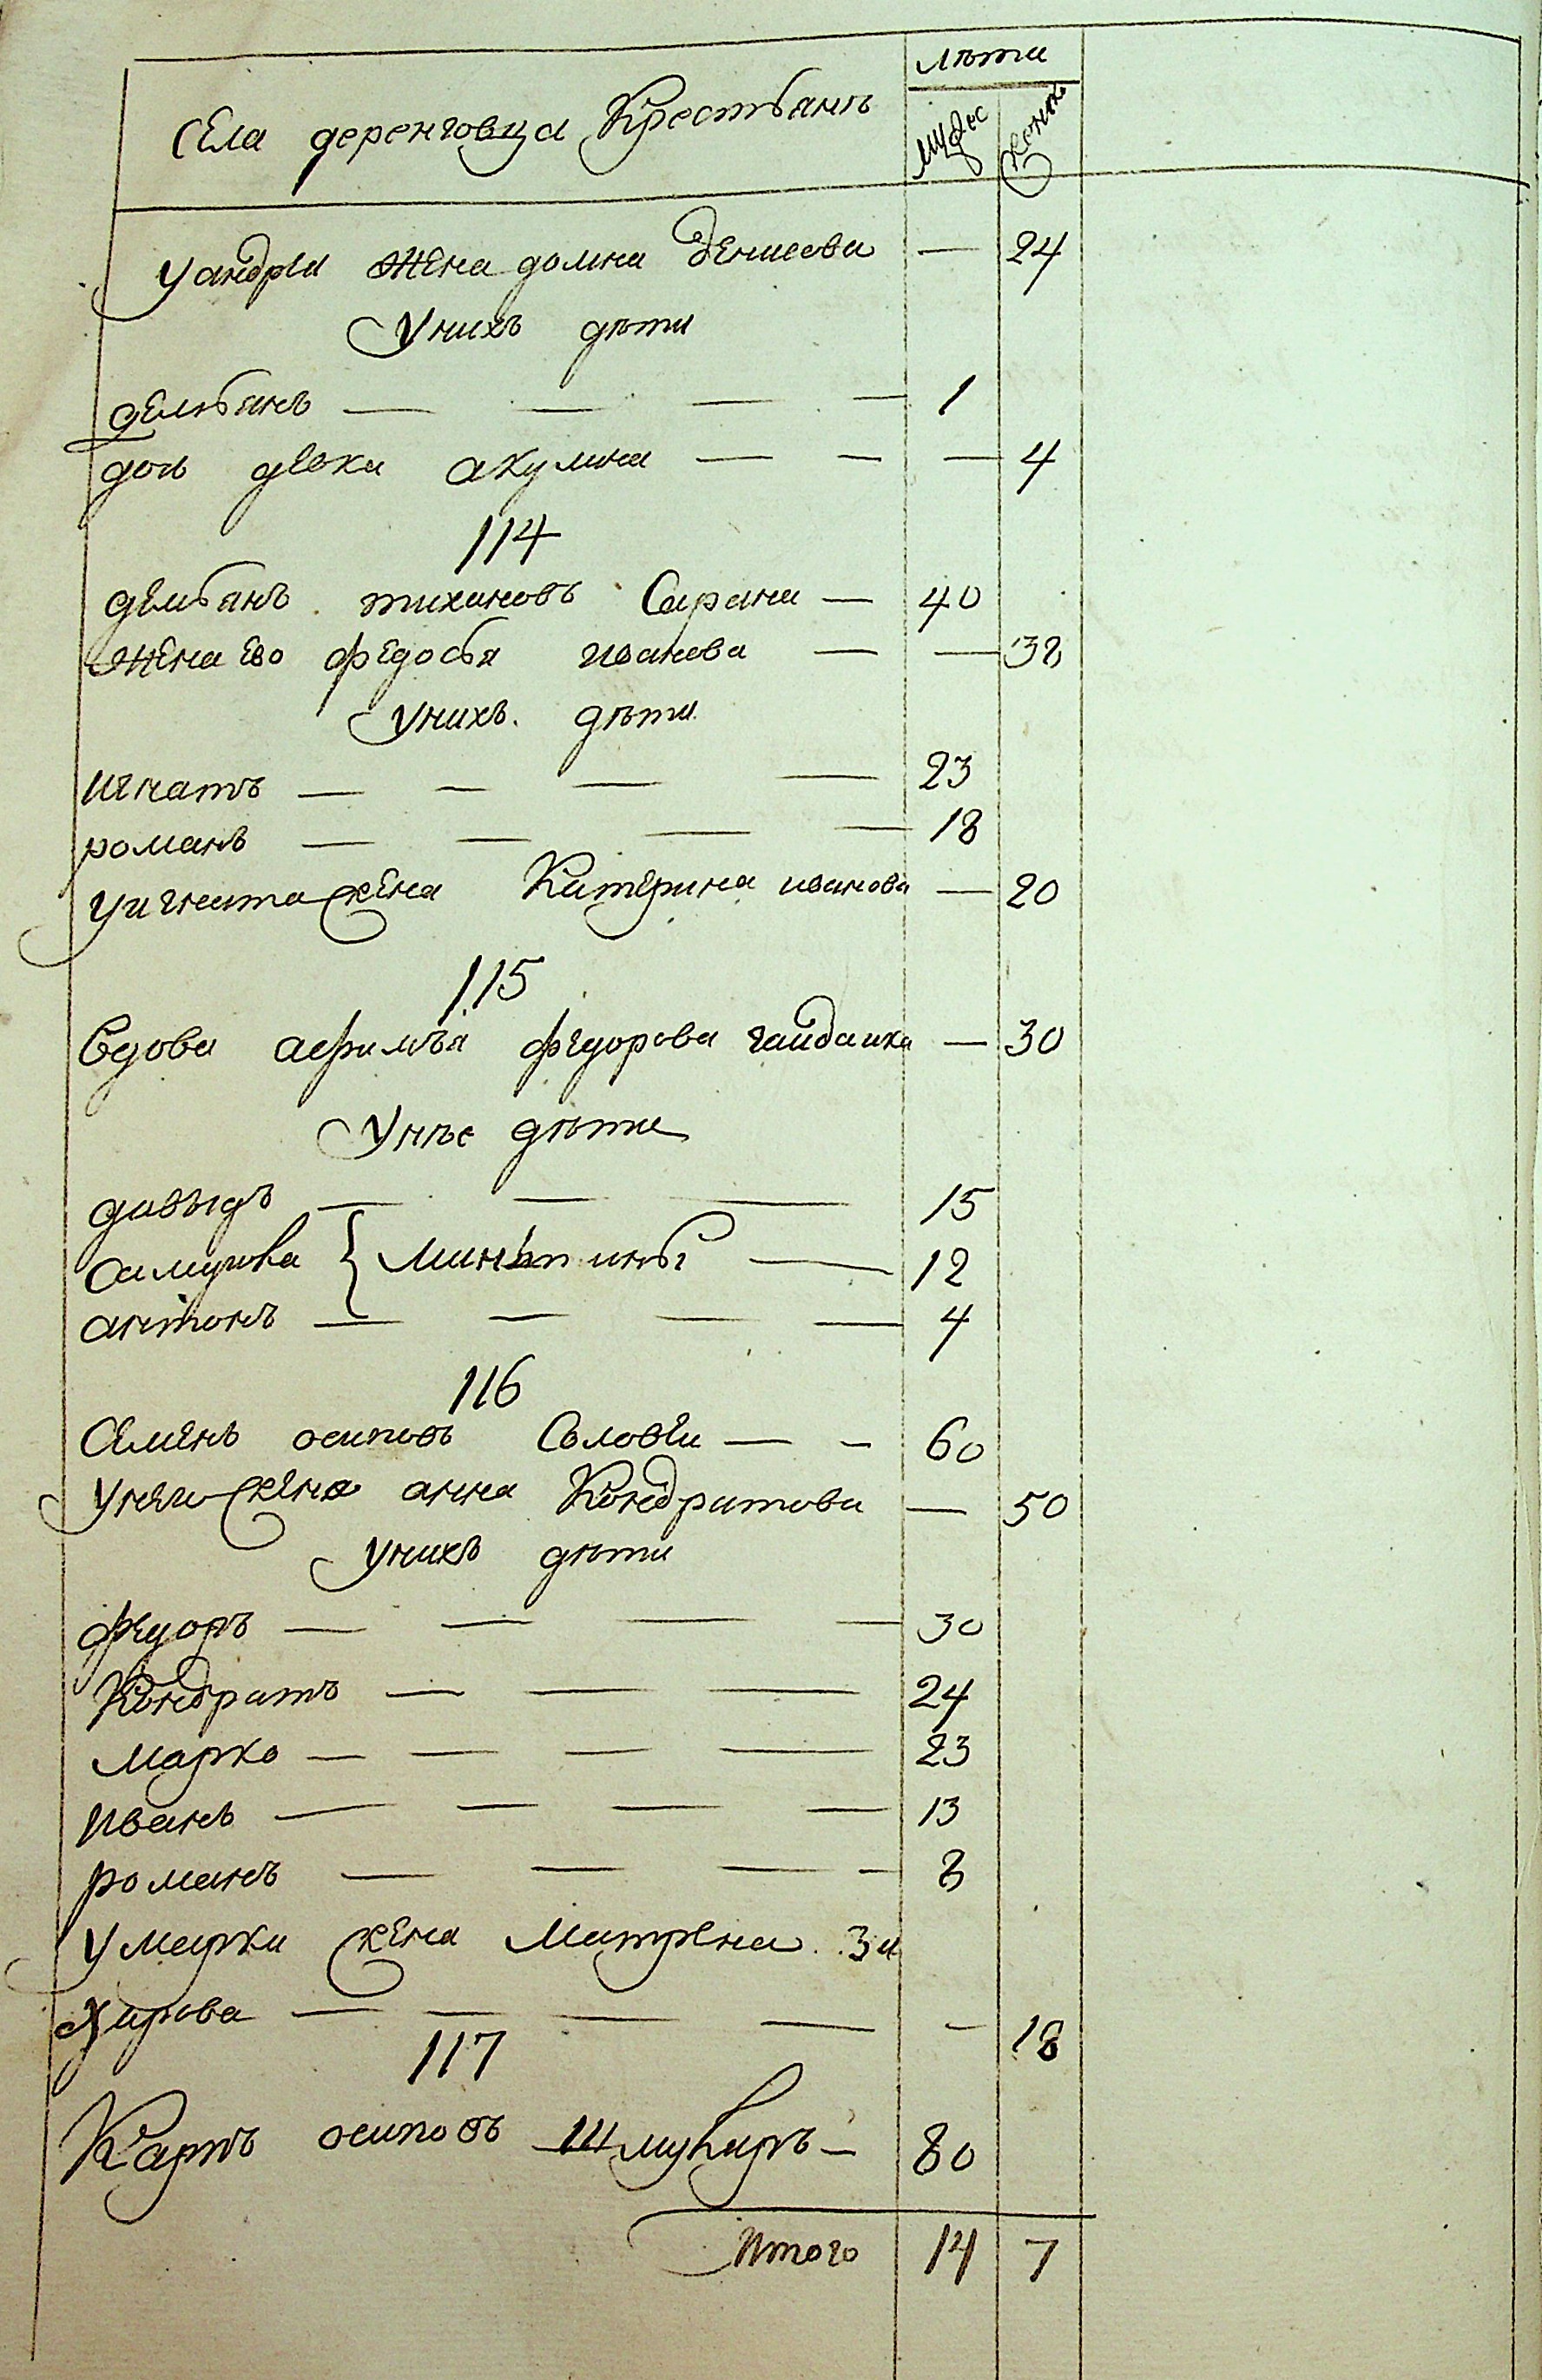 лѣта
Села деренговца Крестьянъ
мужес женъ
У андрея жена домна денисова — 24
У нихъ дѣти
демьянъ — — — — 1
дочь девка акулина — — — 4
114
демьянъ тихановъ Сирани — 40
жена ево федосья иванова — — 38
У нихъ дѣти
игнатъ — — — — 23
романъ — — — — 18
У игната жена Катерина иванова — 20
115
вдова афимъя федорова гайдаика — 30
У нее дѣти
давыдъ — — — 15
самуила { — 12
антонъ — — — — 4
116
Семенъ осиповъ Соловеи — — 60
У него жена анна Кондратова — 50
У нихъ дѣти
федоръ — — — — 30
Кондратъ — — — 24
марко — — — — 23
иванъ — — — — 13
романъ — — — — 8
У марка жена матрена за
харова — — — — — 18
117
Карпъ осиповъ — 80
Итого 14 7